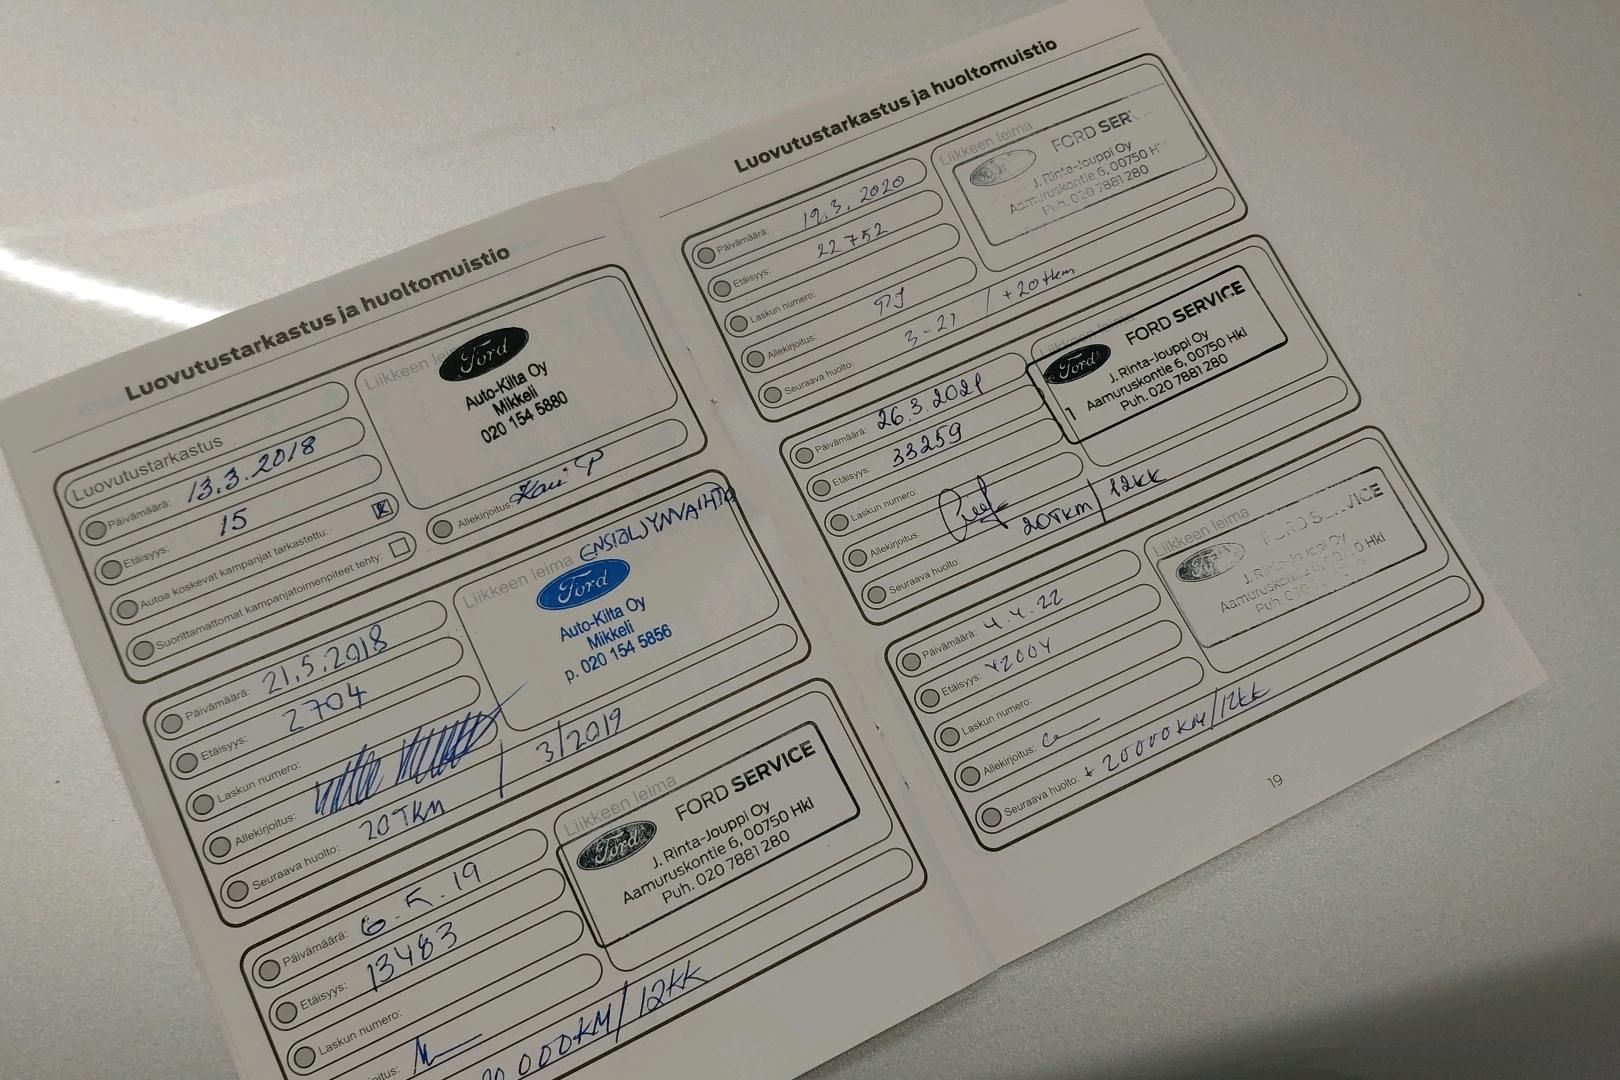 Luovutustarkastus ja huoltomuistio
Luovutustarkastus
Päivämäärä: 13.3.2018
Etäisyys: 15
Autoa koskevat kampanjat tarkastettu:
Suorittamattomat kampanjatoimenpiteet tehty:
Liikkeen
Ford
Auto-Kilta Oy
Mikkeli
020 154 5880
Allekirjoitus:
Päivämäärä: 21.5.2018
Etäisyys: 2704
Laskun numero:
Allekirjoitus:
Seuraava huolto: 20Tkm | 3/2019
Liikkeen leima ENSIÖLJYNVAIHTO
Ford
Auto-Kilta Oy
Mikkeli
p. 020 154 5856
Päivämäärä: 6.5.19
Etäisyys: 13483
Laskun numero:
000KM/12KK
Liikkeen leima
Ford
FORD SERVICE
J. Rinta-Jouppi Oy
Aamuruskontie 6, 00750 Hki
Puh. 020 7881 280
Luovutustarkastus ja huoltomuistio
Päivämäärä: 19.3.2020
Etäisyys: 22752
Laskun numero:
Allekirjoitus:
Seuraava huolto: 3-21 / +20tkm
Liikkeen leima
FORD
J. Rinta-Jouppi Oy
Aamuruskontie 6, 00750
Puh. 020 7881 280
Päivämäärä: 26.3.2021
Etäisyys: 33259
Laskun numero:
Allekirjoitus:
Seuraava huolto: 20Tkm/12kk
Liikkeen leima
Ford
FORD SERVICE
J. Rinta-Jouppi Oy
1 Aamuruskontie 6, 00750 Hki
Puh. 020 7881 280
Päivämäärä: 4.4.22
Etäisyys: 42004
Laskun numero:
Allekirjoitus:
Seuraava huolto: + 20000KM/12KK
Liikkeen leima
FORD SERVICE
Hki
19